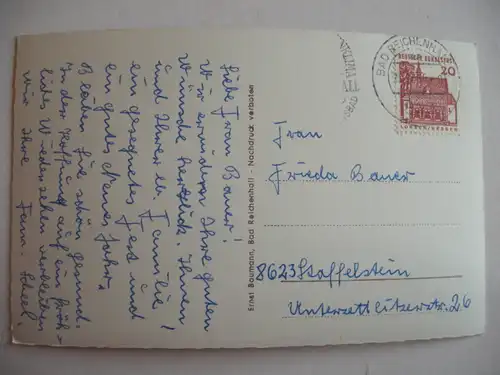 Liebe Frau Bauer!
Wir erwidern Ihre guten
Wünsche herzlich. Ihnen
und Ihrer lb. Familie
ein gesegnetes Fest und
ein gutes Neues Jahr!
Bleiben Sie schön gesund.
In der Hoffnung auf ein fröh-
liches Wiedersehen verbleiben
wir Ihre Fam.
Ernst Baumann, Bad Reichenhall - Nachdruck verboten
BAD REICHENHALL
DEUTSCHE BUNDESPOST
20
LORSCH/HESSEN
Frau
Frieda Bauer
8623 Staffelstein
Unterzettlitzerstr. 26